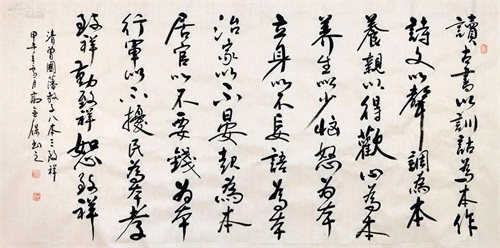 讀古書以訓詁為本作
詩文以聲調為本
養親以得歡心為本
养生以少恼怒为本
立身以不妄語為本
治家以不晏起為本
居官以不要錢为本
行軍以不擾民為本孝
致祥勤致祥恕致祥
清曾國藩教子八本三致祥
甲午年